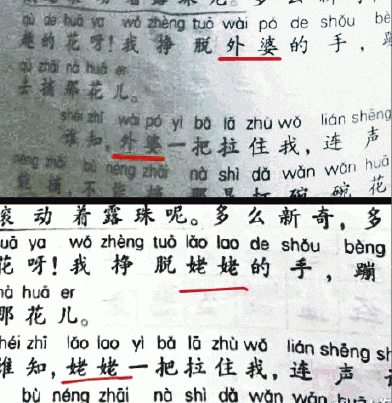 着露珠呢。多么新奇，多
qù de huā ya wǒ zhèng tuō wài pó de shǒu bèng
趣的花呀！我挣脱外婆的手，蹦
qù zhāi nà huā er
去摘那花儿。
shéi zhī wài pó yì bǎ lā zhù wǒ lián shēng
谁知，外婆一把拉住我，连声
néng zhāi bù néng zhāi nà shì dǎ wǎn wǎn huā
能摘，不能摘，那是打碗碗花
滚动着露珠呢。多么新奇，多
huā ya wǒ zhèng tuō lǎo lao de shǒu bèng
花呀！我挣脱姥姥的手，蹦
nà huā er
那花儿。
shéi zhī lǎo lao yì bǎ lā zhù wǒ lián shēng sh
谁知，姥姥一把拉住我，连声
bù néng zhāi nà shì dǎ wǎn wǎn huā